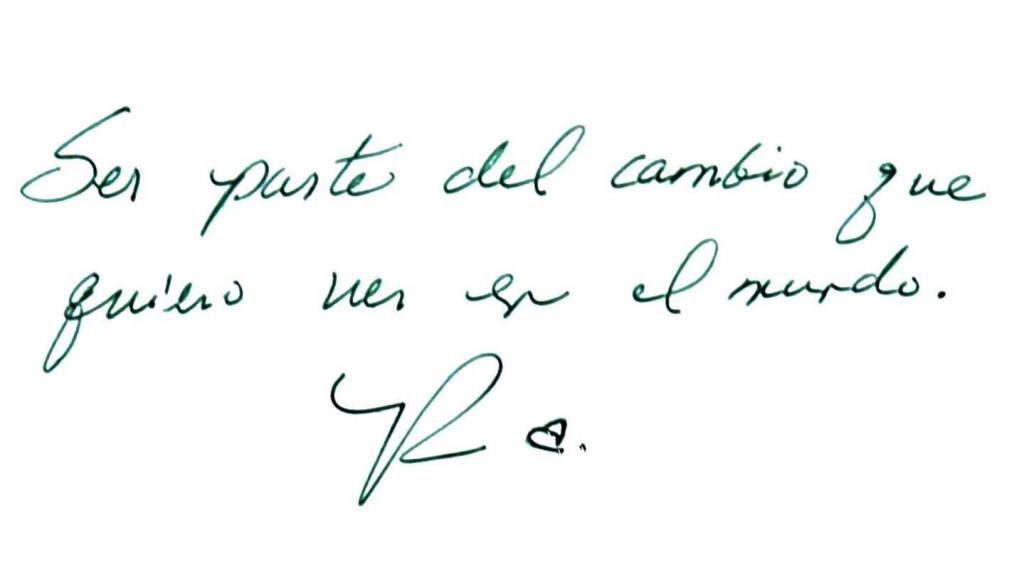 Ser parte del cambio que
quiero ver en el mundo.